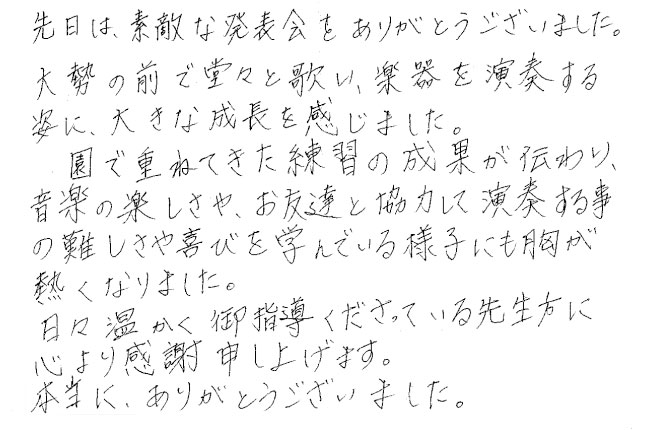 先日は、素敵な発表会をありがとうございました。
大勢の前で堂々と歌い、楽器を演奏する
姿に、大きな成長を感じました。
園で重ねてきた練習の成果が伝わり、
音楽の楽しさや、お友達と協力して演奏する事
の難しさや喜びを学んでいる様子にも胸が
熱くなりました。
日々温かく御指導くださっている先生方に
心より感謝申し上げます。
本当に、ありがとうございました。